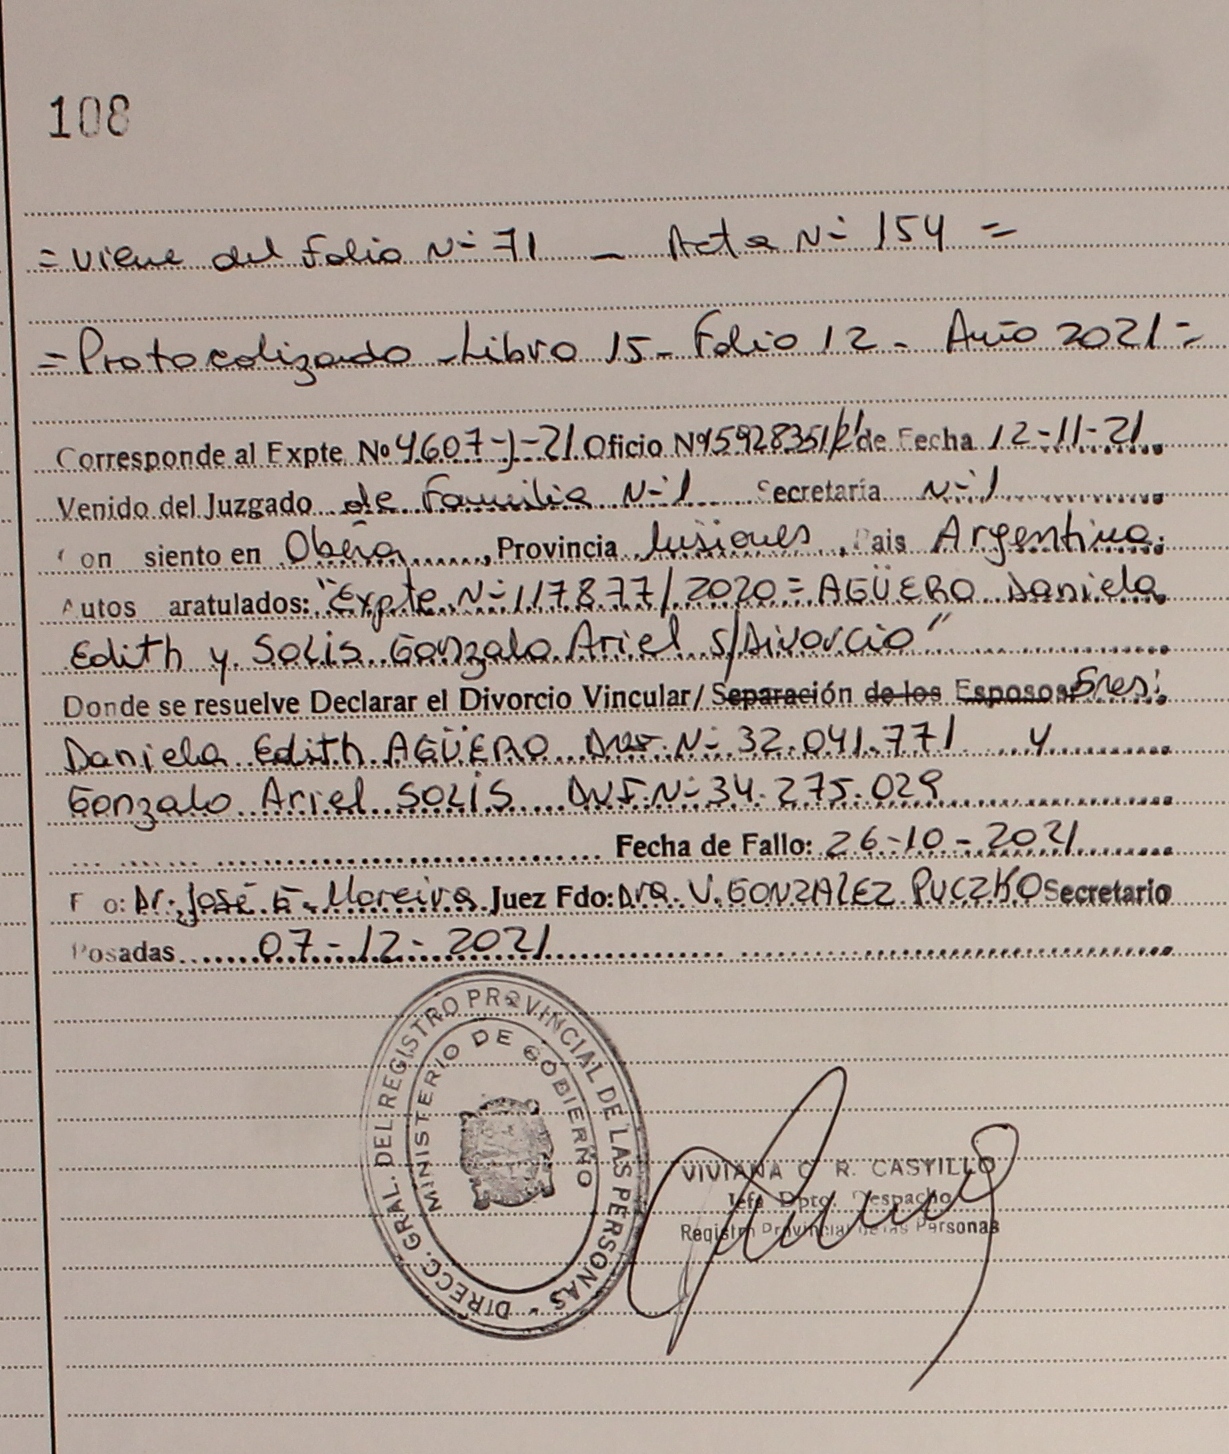 108
= Viene del Folio N= 71 _ Acta N= 154 =
= Protocolizado - Libro 15 - Folio 12 - Año 2021 =
Corresponde al Expte Nº 4607-J-21 Oficio Nº de Fecha 12-11-21
Venido del Juzgado de Familia N=1 Secretaría N=1
on siento en Oberá, Provincia Misiones, Pais Argentina.
Autos aratulados: "Expte N=117877/2020= AGÜERO Daniela
Edith y SOLIS Gonzalo Ariel S/Divorcio"
Donde se resuelve Declarar el Divorcio Vincular/ Separación de los Esposos Sres:
Daniela Edith AGÜERO N= 32.041.771 y
Gonzalo Ariel SOLÍS DNI N= 34.275.029
Fecha de Fallo: 26-10-2021
F o: Dr. José G. Moreira Juez Fdo: Dra. V. GONZALEZ PUCZKO Secretario
Posadas 07-12-2021
DIRECC. GRAL. DEL REGISTRO PROVINCIAL DE LAS PERSONAS -
MINISTERIO DE GOBIERNO
VIVIANA C R. CASTILLO
Jefa Dpto Despacho
Registro Provincial de las Personas